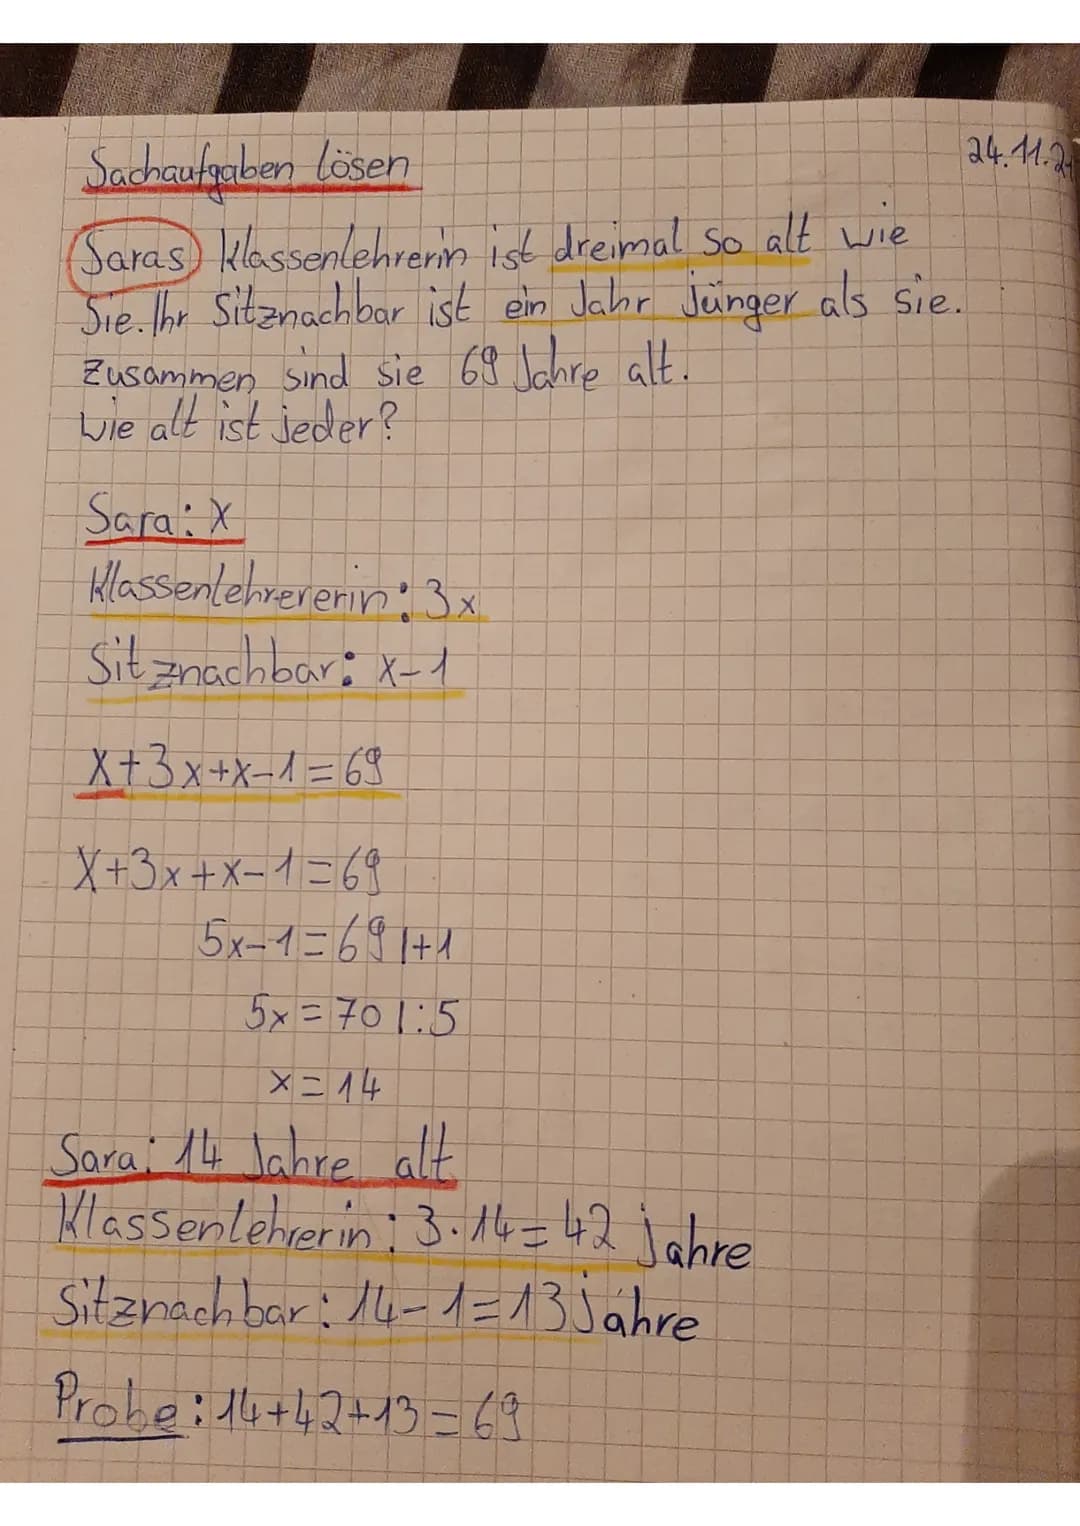 Sachaufgaben lösen
24.11.2
Saras Klassenlehrerin ist dreimal so alt wie
Sie. Ihr Sitznachbar ist ein Jahr jünger als sie.
Zusammen sind sie 69 Jahre alt.
Wie alt ist jeder?
Sara: x
Klassenlehrererin: 3x
Sitznachbar: x-1
x+3x+x-1=69
x+3x+x-1=69
5x-1=69 |+1
5x=70 |:5
x=14
Sara: 14 Jahre alt
Klassenlehrerin: 3·14=42 Jahre
Sitznachbar: 14-1=13 Jahre
Probe: 14+42+13=69